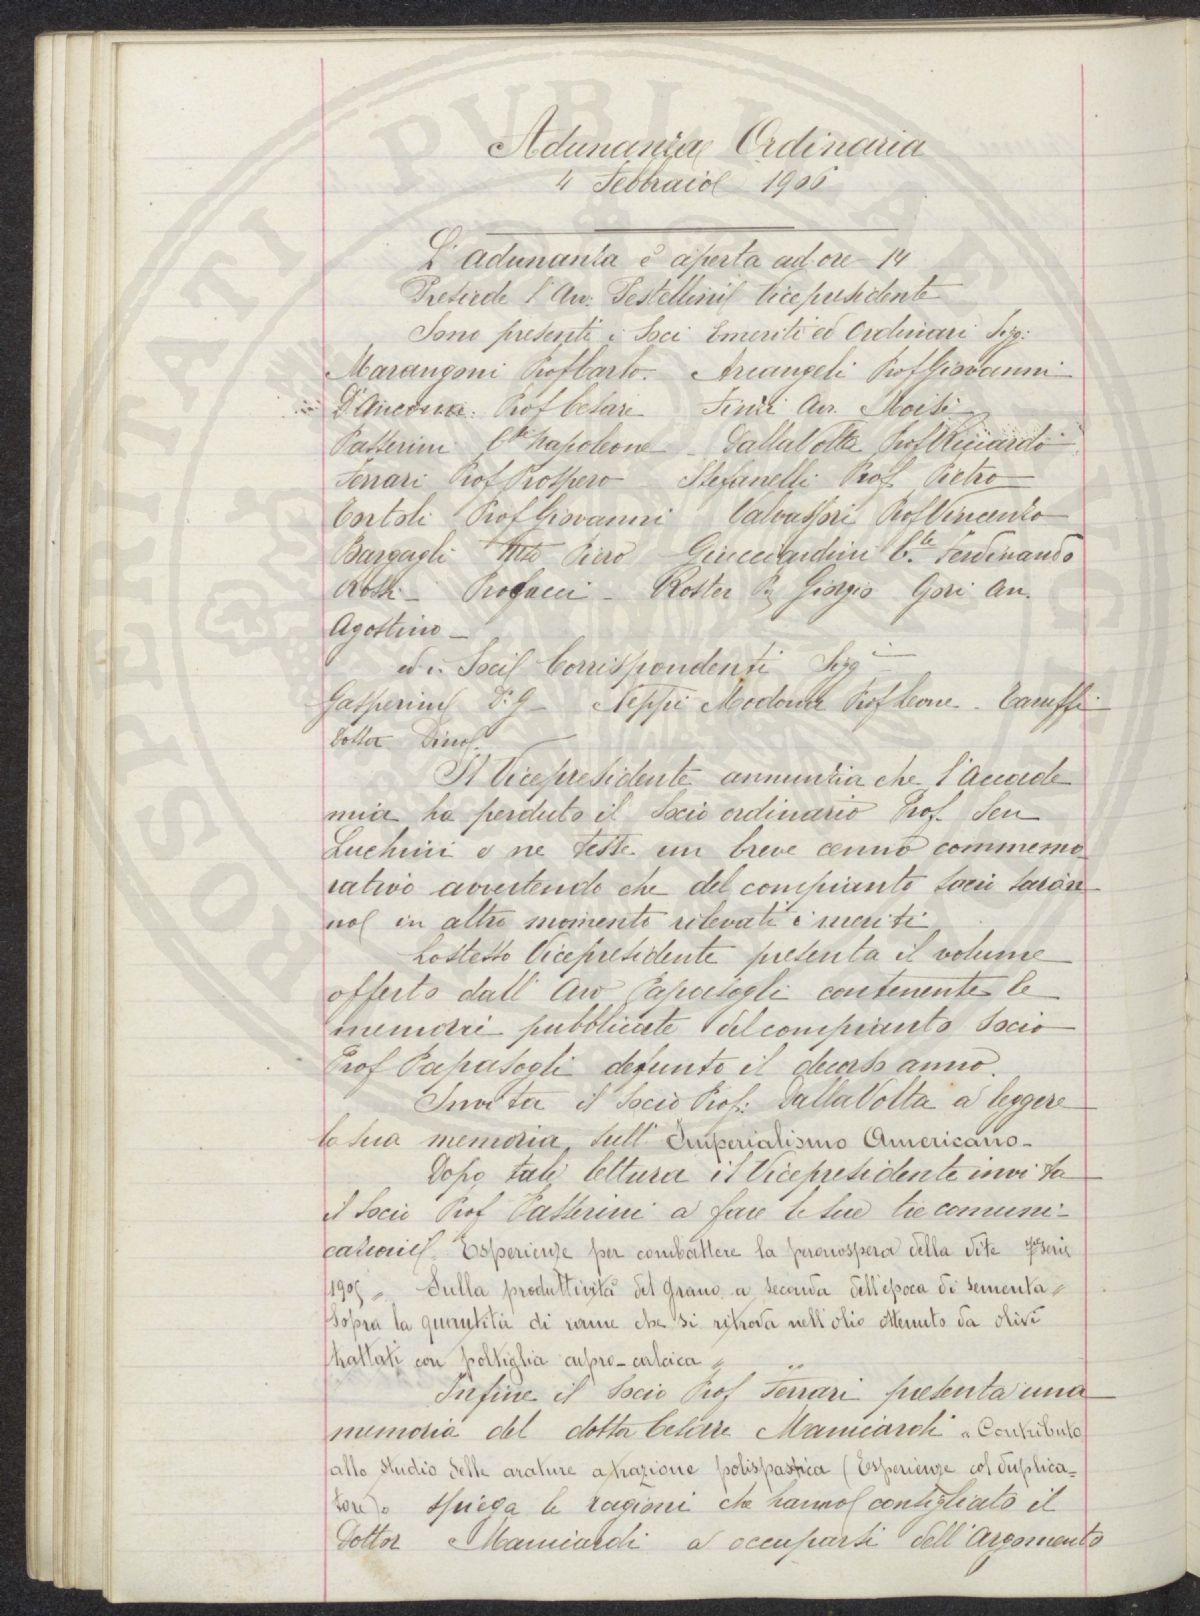 Adunanza Ordinaria
4 Febbraio 1906
L'adunanza è aperta ad ore 14
Presiede l'Avv. Pestellini Vicepresidente
Sono presenti i Soci Emeriti ed Ordinari Sigg:
Marangoni Prof Carlo. Arcangeli Prof Giovanni
D'Ancona. Prof Cesare Finzi Avv. Moisè
Passerini Cte Napoleone - Dalla Volta Prof Riccardo
Ferrari Prof Prospero Stefanelli Prof. Pietro
Bertoli Prof Giovanni Valvassori Prof Vincenzo
Bargagli Piero Guicciardini Cte Ferdinando
Roster Giorgio Gori Avv.
Agostino
ed i Soci Corrispondenti Sigg
Gasperini Dr G - Neppi Modona Prof Leone - Taruffi
Dottor Dino.
Il Vicepresidente annunzia che l'Accade
mia ha perduto il Socio ordinario Prof. Sen
Luchini e ne tesse un breve cenno commemo
rativo avvertendo che del compianto Socio saran
no in altro momento rilevati i meriti
Lo stesso Vicepresidente presenta il volume
offerto dall'Avv Papasogli contenente le
memorie pubblicate del compianto Socio
Prof Papasogli defunto il decorso anno.
Invita il Socio Prof: Dalla Volta a leggere
la sua memoria sull'Imperialismo Americano -
Dopo tale lettura il Vicepresidente invita
il Socio Prof Passerini a fare le sue tre comuni-
cazioni. Esperienze per combattere la peronospera della vite serie
1905 „ Sulla produttività del grano a seconda dell'epoca di sementa „
Sopra la quantità di rame che si ritrova nell'olio ottenuto da olivi
trattati con poltiglia cupro-calcica „
Infine il Socio Prof Ferrari presenta una
memoria del dottor Cesare Manciardi „ Contributo
allo studio delle arature a trazione polispastica (Esperienze col duplica-
tore) „ spiega le ragioni che hanno consigliato il
Dottor Manciardi a occuparsi dell'argomento